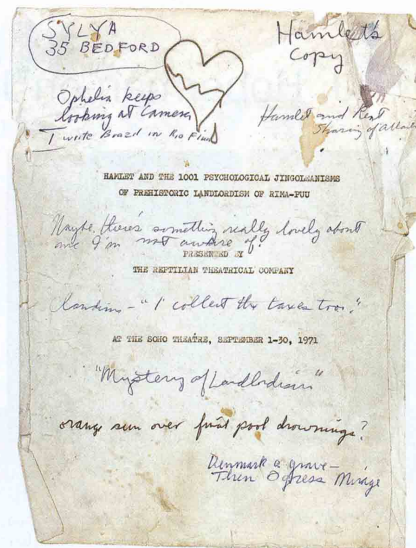 SYLYA
35 BEDFORD
Hamlet's
Copy
Ophelia keeps
looking at Camera
I write Board in Rio Fund
Hamlet and Rent
Sharing of
HAMLET AND THE 1001 PSYCHOLOGICAL JINGOLEANISMS
OF PREHISTORIC LANDLORDISM OF RIMA-PUU
Maybe there's something really lovely about
me I'm not aware of?
PRESENTED BY
THE REPTILIAN THEATRICAL COMPANY
"I collect the taxes too."
AT THE SOHO THEATRE, SEPTEMBER 1-30, 1971
"Mystery of Landlordism"
orange sun over first pool drownings?
Denmark a grave—
Then Ogress Mirage